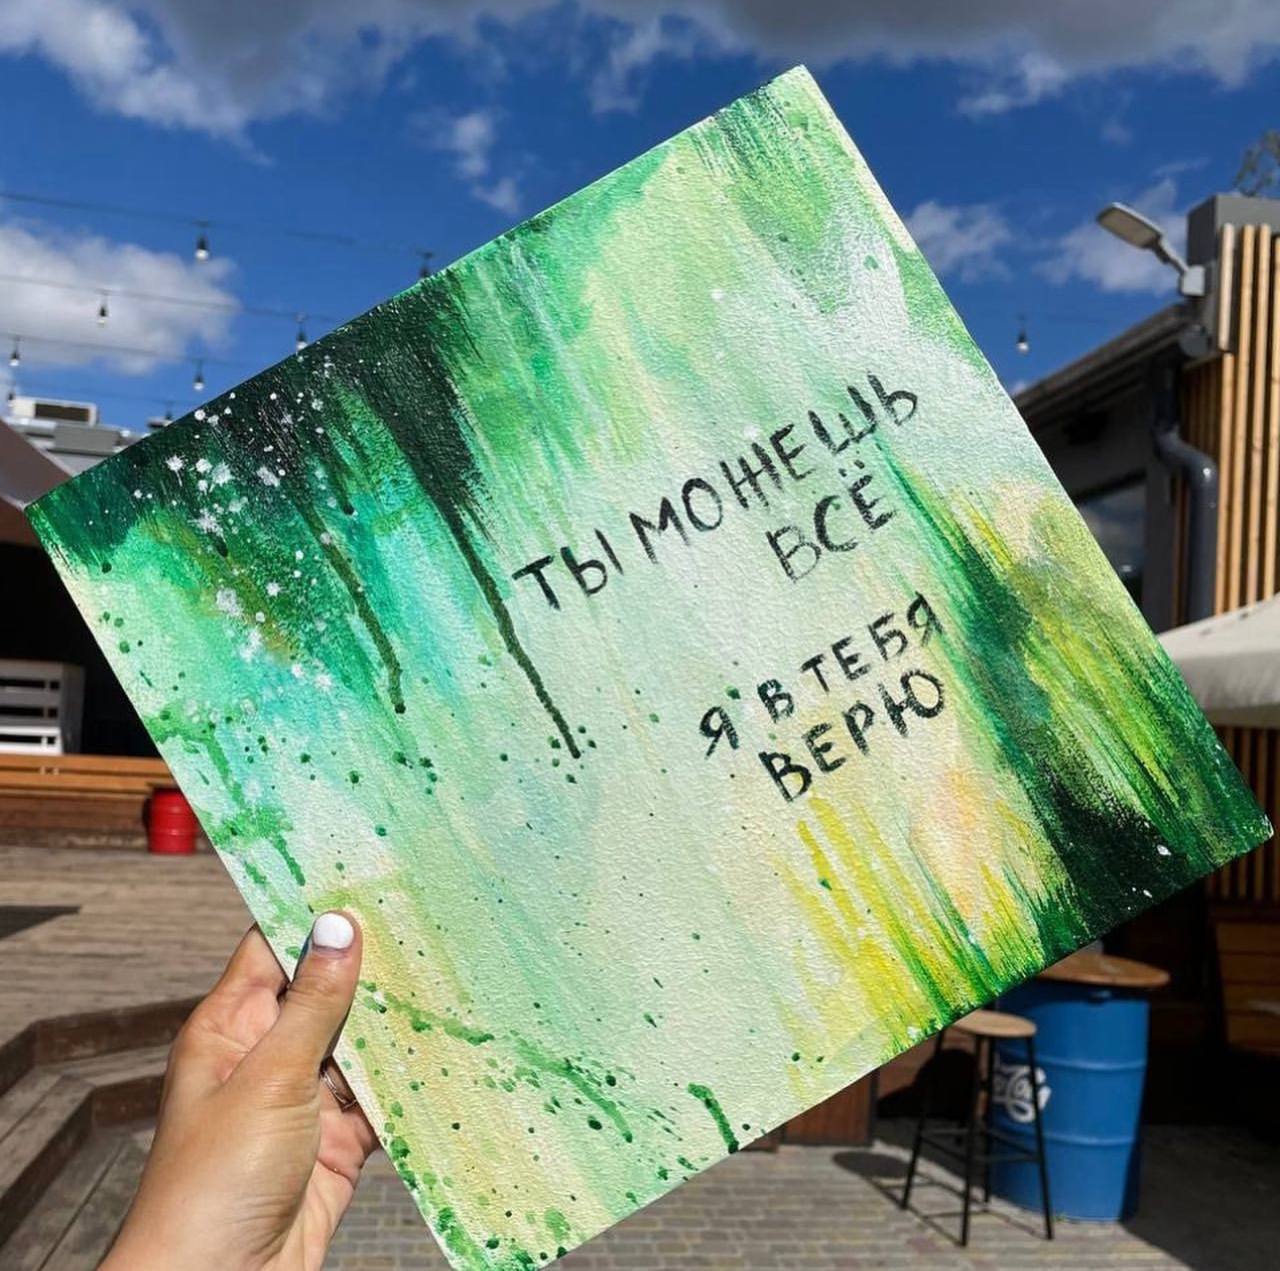 ТЫ МОЖЕШЬ
ВСЁ
Я В ТЕБЯ
ВЕРЮ